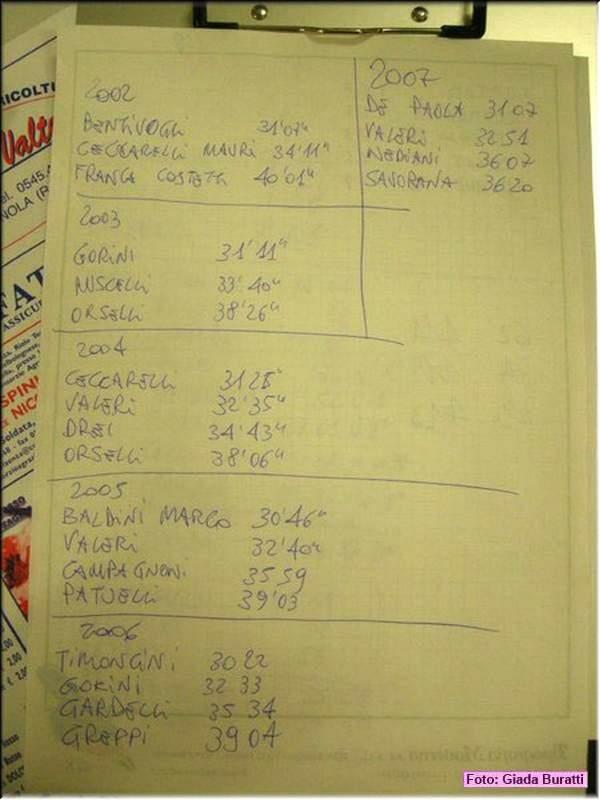 2002
BENTIVOGLI 31'07"
CECCARELLI MAURI 34'11"
FRANCA COSTETTI 40'01"
2003
GORINI 31'11"
MISCELLI 33'40"
ORSELLI 38'26"
2004
CECCARELLI 31 28"
VALERI 32'35"
DREI 34'43"
ORSELLI 38'06"
2005
BALDINI MARCO 30'46"
VALERI 32'40"
CAMPAGNONI 35 59
PATUELLI 39'03
2006
TIMONCINI 30 22
GORINI 32 33
GARDELLI 35 34
GREPPI 39 04
2007
DE PAOLA 31 07
VALERI 32 51
NEDIANI 36 07
SAVORANA 36 20
RICOLTI
Valt
el. 0545.4
NOLA (R
FAT
ASSICUR
SPINI
NICC
Soldata,
Foto: Giada Buratti